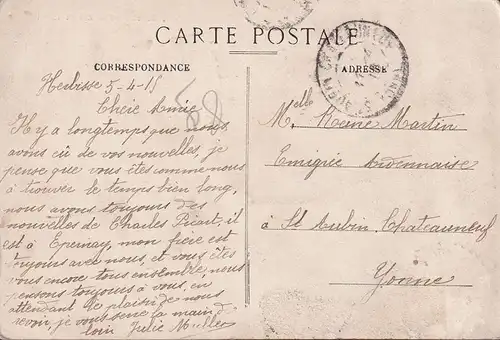 CARTE POSTALE
CORRESPONDANCE
ADRESSE
Herbisse 5-4-15
Chère Amie
Il y a longtemps que nous
avons eû de vos nouvelles, je
pense que vous êtes comme nous
à trouver le temps bien long,
nous avons toujours des
nouvelles de Charles Picart, il
est à Epernay, mon frère est
toujours avec nous, et vous êtes
vous encore tous ensemble, nous
pensons toujours à vous, en
attendant le plaisir de nous
revoir, je vous serre la main de
loin Julie Muller
58
Melle
M. Reine Martin
Emigrée Ardennaise
à St Aubin, Chateauneuf
Yonne